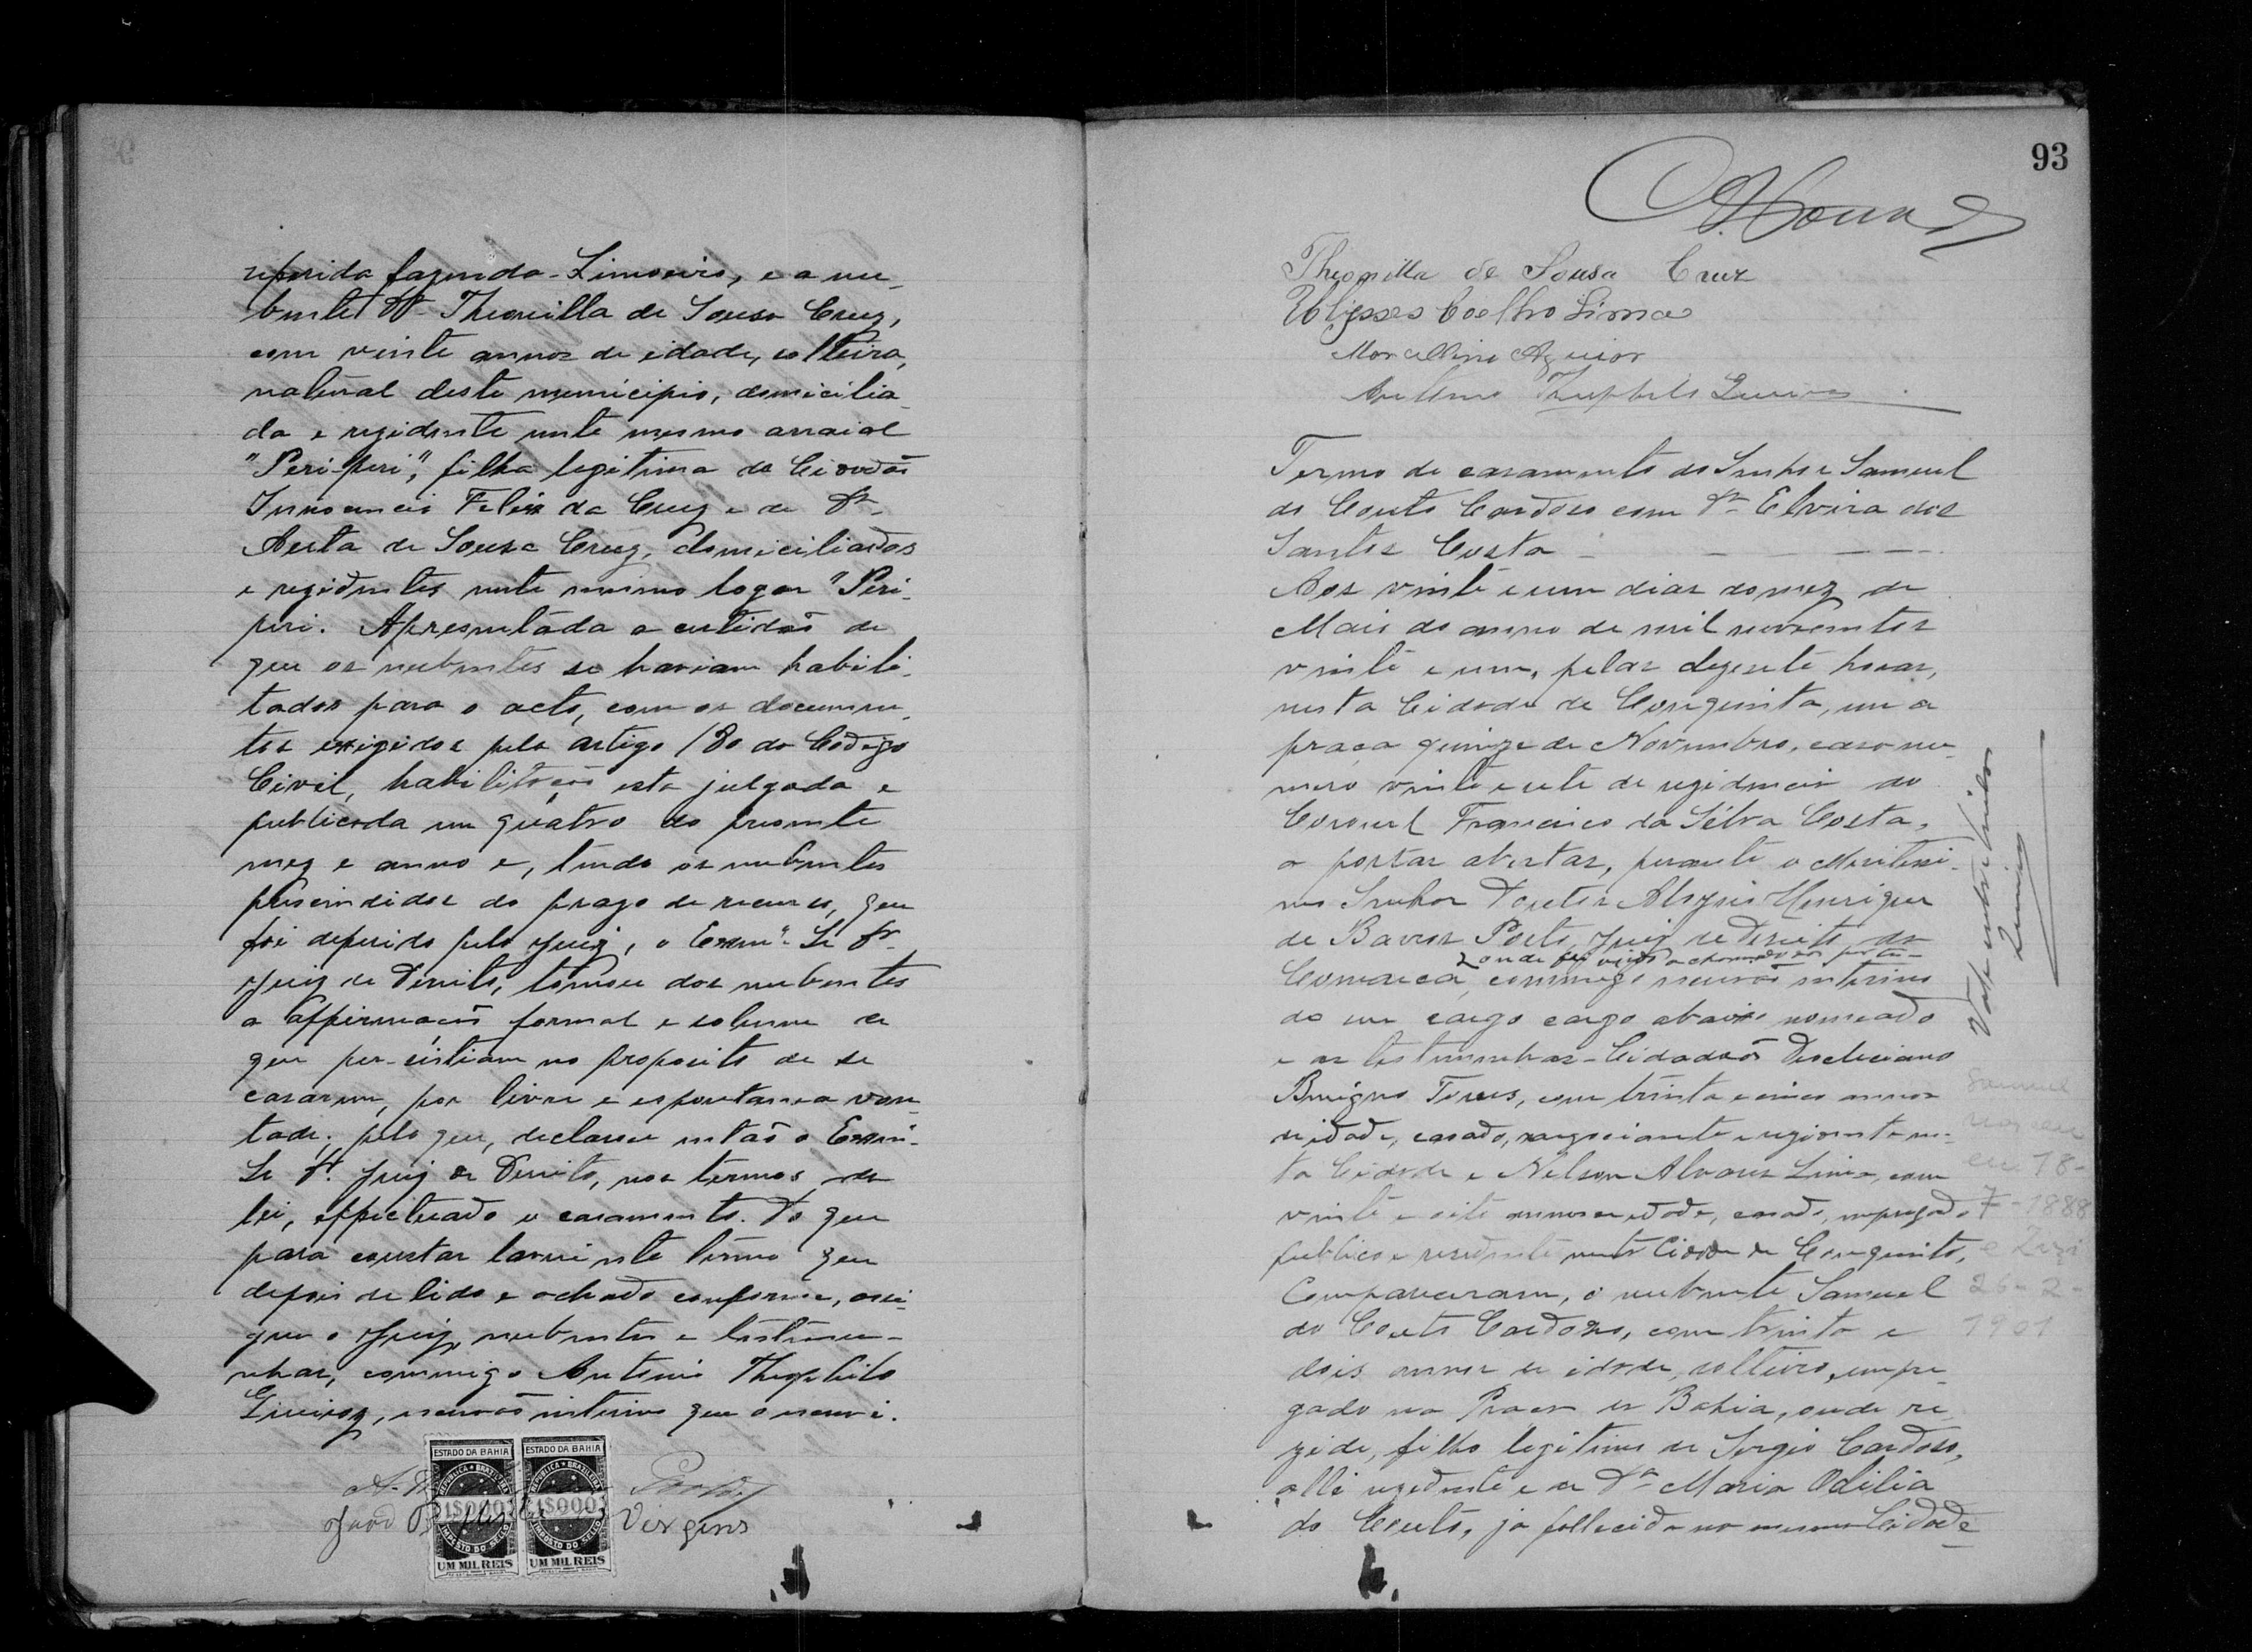 referida fazenda Limoeiro, e a nu-
bente Dª Theonilla de Sousa Cruz,
com vinte annos de idade, solteira,
natural deste municipio, domicilia-
da e rezidente neste mesmo arraial
"Peri-peri", filha legitima do Cidadão
Innocencio Felix da Cruz e de Dª
Aerta de Sousa Cruz, domiciliados
e rezidentes neste mesmo logar "Peri-
peri. Apresentada a certidão de
que os nubentes se haviam habili-
tados para o acto, com os documen-
tos exigidos pelo artigo 180 do Codigo
Civil, habilitação esta julgada e
publicada em quatro do presente
mez e anno e, tendo os nubentes
prescindidos do prazo de recurso, que
foi deferido pelo Juiz, o Exmº Sr Dr
Juiz de Direito, tomou dos nubentes
a affirmação formal e solemne de
que per-sistiam no proposito de se
casarem, por livre e espontanea von-
tade; pelo que, declarou então o Exmº
Sr Dr. Juiz de Direito, nos termos da
lei, effectuado o casamento. Do que
para constar lavrei este termo que
depois de lido e achado conforme, assi-
gna o Juiz, nubentes e testemu-
nhas, commigo Antonio Theophilo
Queiroz, escrivão interino que o escrevi.
ESTADO DA BAHIA ESTADO DA BAHIA
REPUBLICA BRAZILEIRA REPUBLICA BRAZILEIRA
Porto
1$000 1$000
João Virgens
IMPOSTO DO SELLO IMPOSTO DO SELLO
UM MIL REIS UM MIL REIS
93
Theonilla de Sousa Cruz
Ulysses Coelho Lima
Marcellino Aguiar
Antonio Theophilo Queiroz
Termo de casamento do Senhor Samuel
do Couto Cardoso com Dª Elvira dos
Santos Costa
Aos vinte e um dias do mez de
Maio do anno de mil novecentos
vinte e um, pelas dezesete horas,
nesta Cidade de Conquista, em a
praça quinze de Novembro, casa nu-
mero vinte e sete de rezidencia do
Coronel Francisco da Silva Costa,
a portas abertas, perante o Meritissi-
mo Senhor Doutor Aloysio Henrique
de Barros Porto, Juiz de Direito da
onde foi vindo a chamado
Comarca, commigo escrivão interino
do seu cargo cargo abaixo nomeado
e as testemunhas - Cidadãos Deocleciano
Benigno Torres, com trinta e cinco annos
de idade, casado, negociante e rezidente nes-
ta Cidade e Nelson Alvares Lima, com
vinte e oito annos de edade, casado, empregado
publico e residente nesta Cidade de Conquista,
Compareceram, o nubente Samuel
do Couto Cardoso, com trinta e
dois annos de idade, solteiro, empre-
gado na Praça da Bahia, onde re-
zide, filho legitimo de Sergio Cardoso,
alli rezidente e de Dª Maria Odilia
do Couto, ja fallecida na mesma Cidade
Vale entrelinhas
Samuel
em 18-
7-1888
e
26-2-
1901